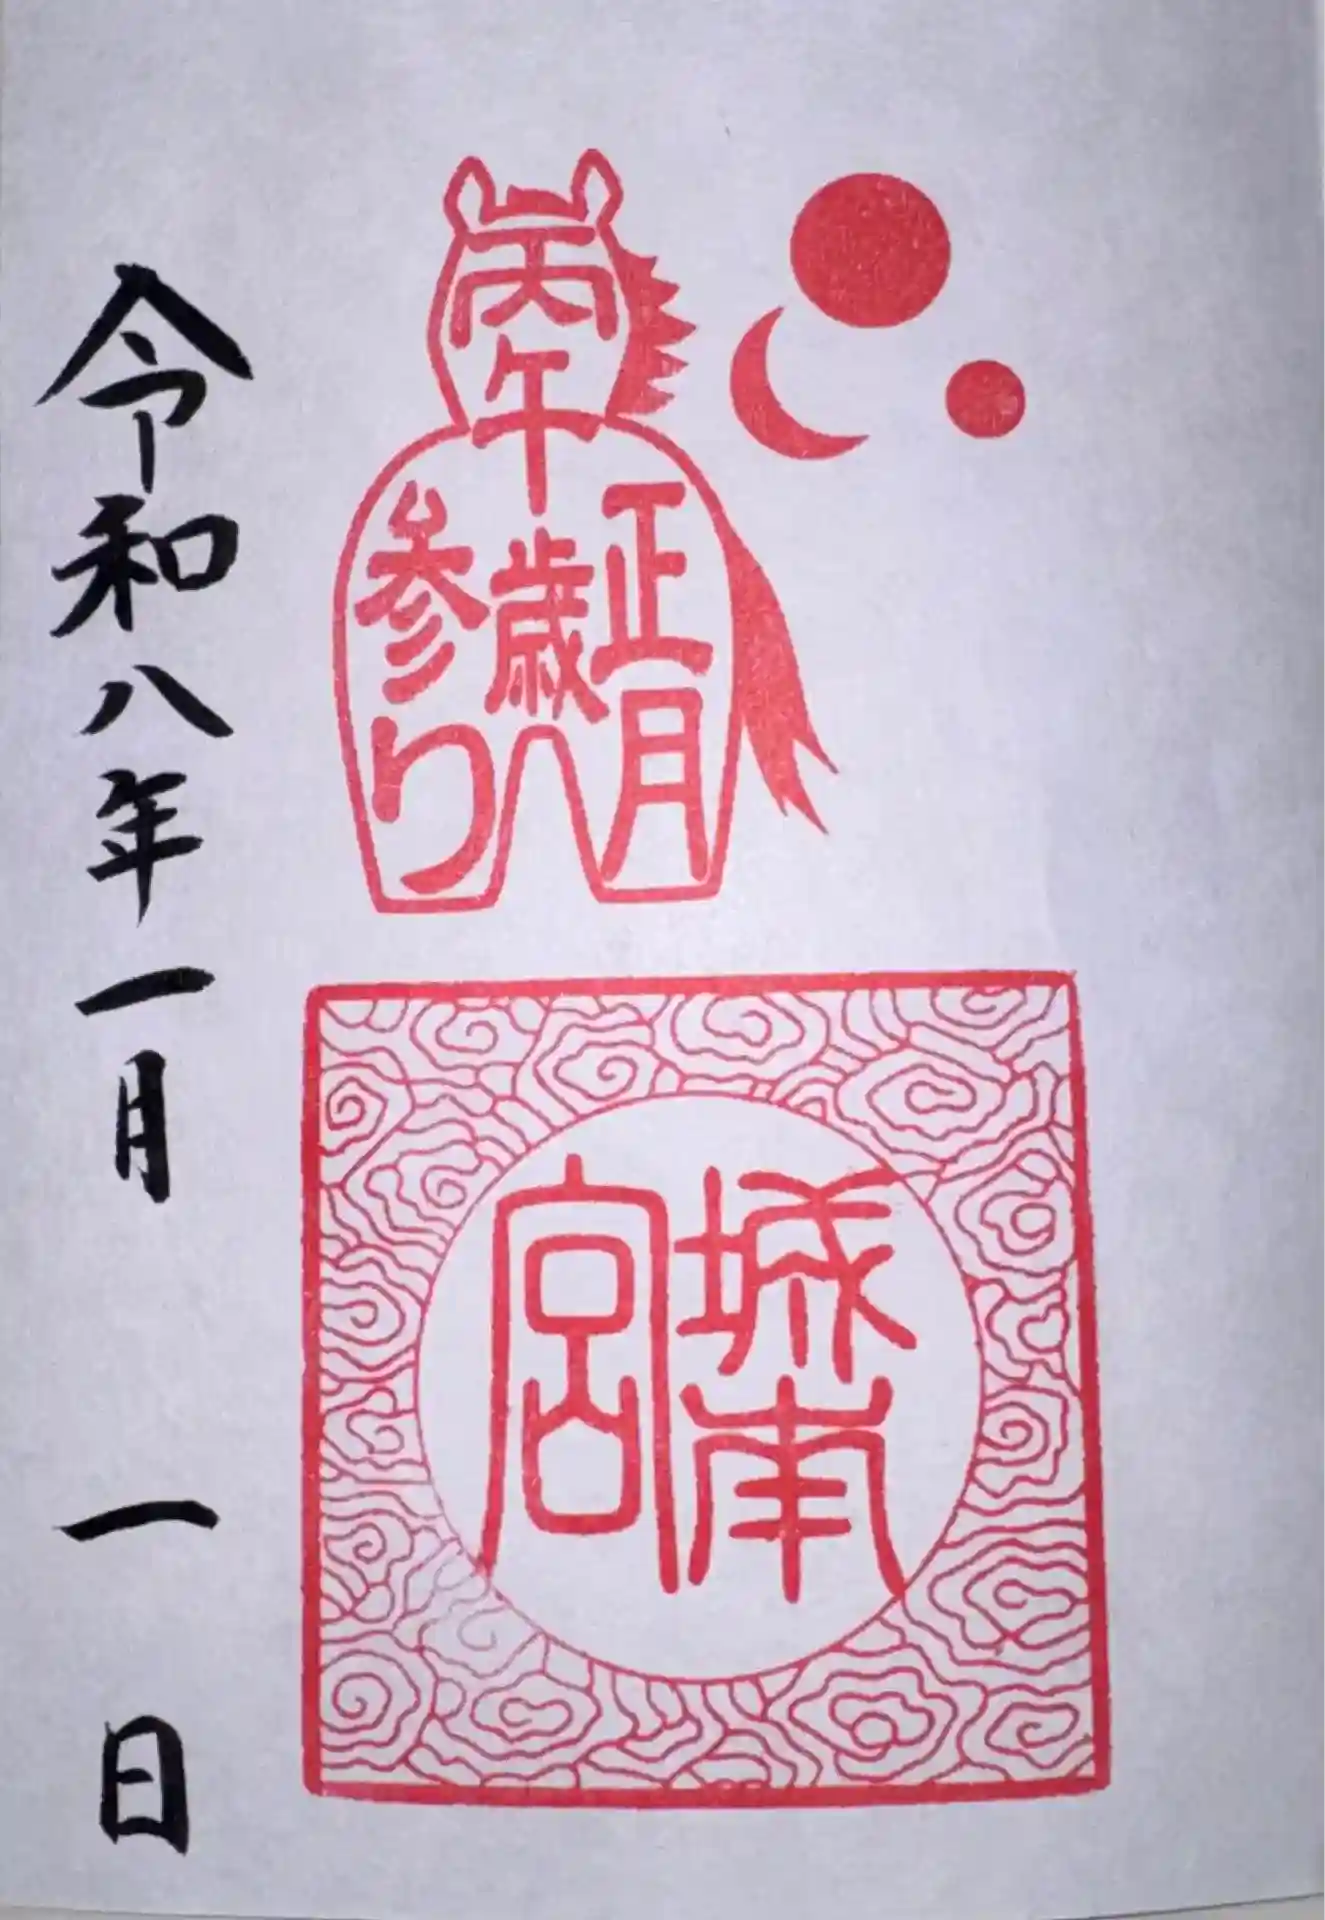 正月
丙午歳
参り
城南
宮
令和八年一月一日